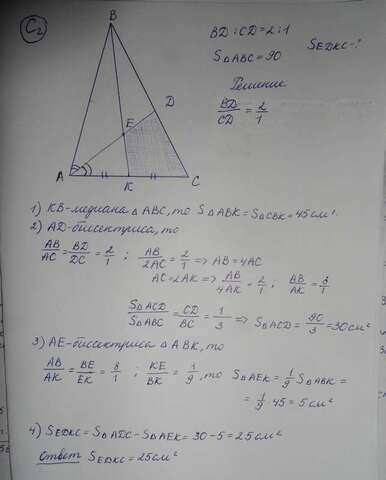 C₂
B
BD : CD = 2 : 1
S△ABC = 90
S EDKC - ?
Решение
BD/CD = 2/1
D
E
A
K
C
1) KB-медиана △ABC, то S△ABK = S△CBK = 45 см².
2) AD-биссектриса, то
AB/AC = BD/DC = 2/1 ; AB/2AC = 2/1 ⇒ AB = 4AC
AC = 2AK ⇒ AB/4AK = 2/1 ; AB/AK = 8/1
S△ACD/S△ABC = CD/BC = 1/3 ⇒ S△ACD = 90/3 = 30 см²
3) AE-биссектриса △ABK, то
AB/AK = BE/EK = 8/1 ; KE/BK = 1/9, то S△AEK = 1/9 S△ABK =
= 1/9 · 45 = 5 см²
4) S EDKC = S△ADC - S△AEK = 30 - 5 = 25 см²
Ответ S EDKC = 25 см²